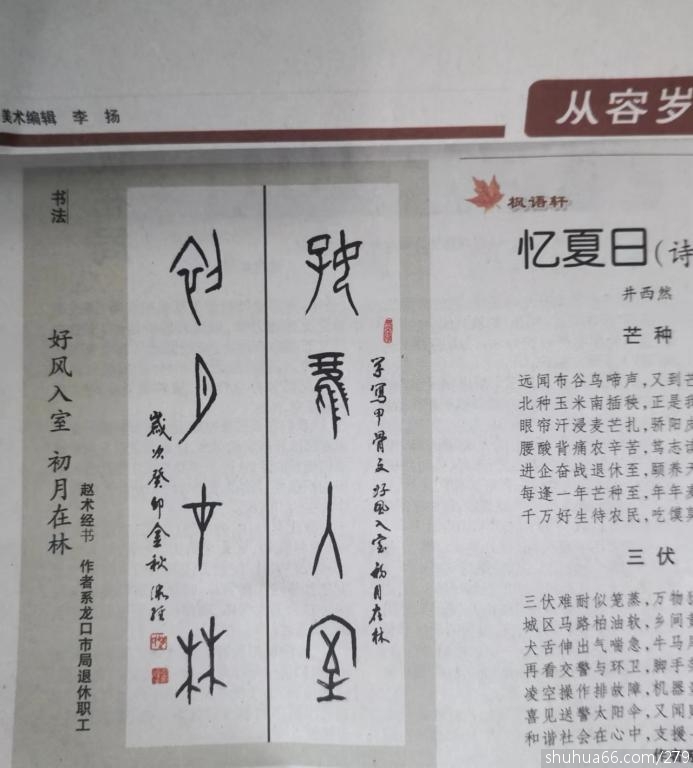 美术编辑 李 扬
从容岁
书法
好风入室 初月在林
赵术经书 作者系龙口市局退休职工
好风入室
学写甲骨文好风入室初月在林
初月在林
岁次癸卯金秋术经
枫语轩
忆夏日(诗
井西然
芒 种
远闻布谷鸟啼声,又到芒
北种玉米南插秧,正是我
眼帘汗浸麦芒扎,骄阳
腰酸背痛农辛苦,笃志
进企奋战退休至,颐养天
每逢一年芒种至,年年麦
千万好生待农民,吃馍
三 伏
三伏难耐似笼蒸,万物
城区马路柏油软,乡间
犬舌伸出气喘急,牛马
再看交警与环卫,脚手
凌空操作排故障,机器
喜见送警太阳伞,又闻
和谐社会在心中,支援
shuhua66.com/279